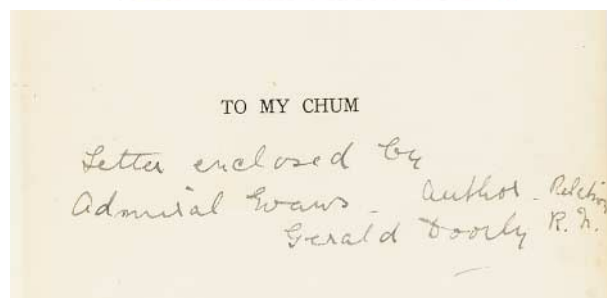 TO MY CHUM
Letter enclosed by
Admiral Evans - Author -
Gerald Doorly R.N.